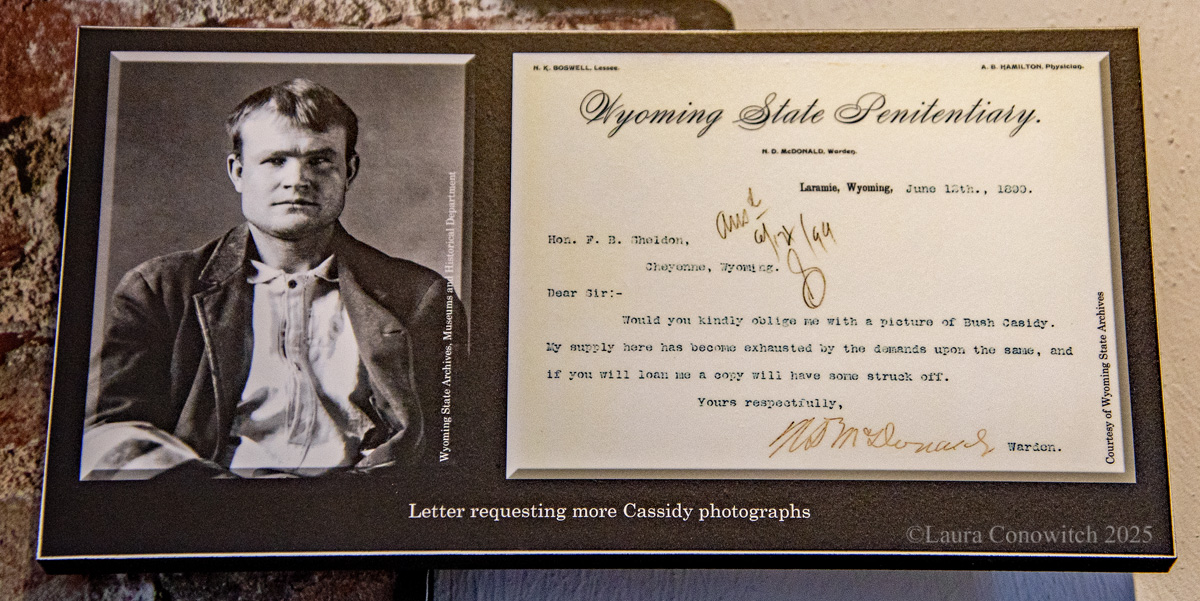 Wyoming State Archives, Museums and Historical Department
N. K. BOSWELL, Lessee.
A. B. HAMILTON, Physician.
Wyoming State Penitentiary.
N. D. McDONALD, Warden.
Laramie, Wyoming, June 12th., 1899.
Ansd
6/12/99
Hon. F. B. Sheldon,
Cheyenne, Wyoming.
Dear Sir:-
Would you kindly oblige me with a picture of Bush Casidy.
My supply here has become exhausted by the demands upon the same, and
if you will loan me a copy will have some struck off.
Yours respectfully,
N D McDonald Warden.
Courtesy of Wyoming State Archives
Letter requesting more Cassidy photographs
©Laura Conowitch 2025